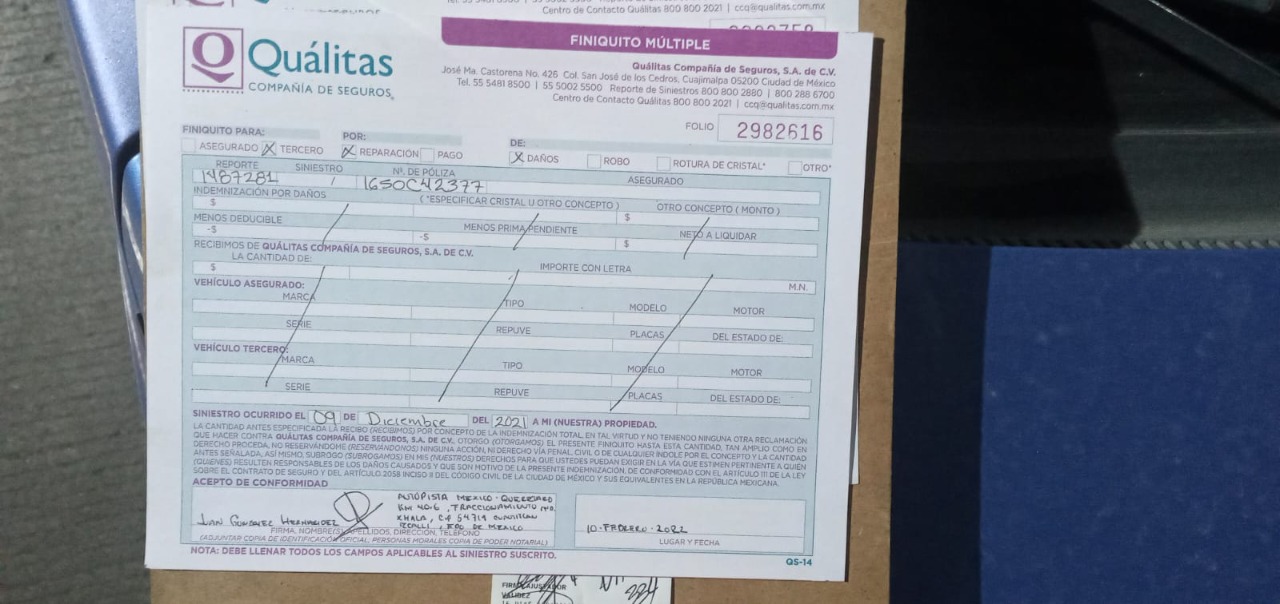 Centro de Contacto Quálitas 800 800 2021 | ccq@qualitas.com.mx
Q
Quálitas
COMPAÑÍA DE SEGUROS
FINIQUITO MÚLTIPLE
Quálitas Compañía de Seguros, S.A. de C.V.
José Ma. Castorena No. 426 Col. San José de los Cedros, Cuajimalpa 05200 Ciudad de México
Tel. 55 5481 8500 | 55 5002 5500 Reporte de Siniestros 800 800 2880 | 800 288 6700
Centro de Contacto Quálitas 800 800 2021 | ccq@qualitas.com.mx
FOLIO 2982616
FINIQUITO PARA: POR: DE:
ASEGURADO X TERCERO X REPARACIÓN PAGO X DAÑOS ROBO ROTURA DE CRISTAL* OTRO*
REPORTE SINIESTRO Nº. DE PÓLIZA ASEGURADO
1487281 / 1650C42377
INDEMNIZACIÓN POR DAÑOS (*ESPECIFICAR CRISTAL U OTRO CONCEPTO) OTRO CONCEPTO (MONTO)
$ $
MENOS DEDUCIBLE MENOS PRIMA PENDIENTE NETO A LIQUIDAR
-$ -$ $
RECIBIMOS DE QUÁLITAS COMPAÑÍA DE SEGUROS, S.A. DE C.V.
LA CANTIDAD DE: IMPORTE CON LETRA
$ M.N.
VEHÍCULO ASEGURADO:
MARCA TIPO MODELO MOTOR
SERIE REPUVE PLACAS DEL ESTADO DE:
VEHÍCULO TERCERO:
MARCA TIPO MODELO MOTOR
SERIE REPUVE PLACAS DEL ESTADO DE:
SINIESTRO OCURRIDO EL 09 DE Diciembre DEL 2021 A MI (NUESTRA) PROPIEDAD.
LA CANTIDAD ANTES ESPECIFICADA LA RECIBO (RECIBIMOS) POR CONCEPTO DE LA INDEMNIZACIÓN TOTAL, EN TAL VIRTUD Y NO TENIENDO NINGUNA OTRA RECLAMACIÓN
QUE HACER CONTRA QUÁLITAS COMPAÑÍA DE SEGUROS, S.A. DE C.V. OTORGO (OTORGAMOS) EL PRESENTE FINIQUITO HASTA ESTA CANTIDAD, TAN AMPLIO COMO EN
DERECHO PROCEDA, NO RESERVÁNDOME (RESERVÁNDONOS) NINGUNA ACCIÓN, NI DERECHO VÍA PENAL, CIVIL O DE CUALQUIER ÍNDOLE POR EL CONCEPTO Y LA CANTIDAD
ANTES SEÑALADA, ASÍ MISMO, SUBROGO (SUBROGAMOS) EN MIS (NUESTROS) DERECHOS PARA QUE USTEDES PUEDAN EXIGIR EN LA VÍA QUE ESTIMEN PERTINENTE A QUIÉN
(QUIÉNES) RESULTEN RESPONSABLES DE LOS DAÑOS CAUSADOS Y QUE SON MOTIVO DE LA PRESENTE INDEMNIZACIÓN, DE CONFORMIDAD CON EL ARTÍCULO 111 DE LA LEY
SOBRE EL CONTRATO DE SEGURO Y DEL ARTÍCULO 2058 INCISO II DEL CÓDIGO CIVIL DE LA CIUDAD DE MÉXICO Y SUS EQUIVALENTES EN LA REPÚBLICA MEXICANA.
ACEPTO DE CONFORMIDAD
AUTOPISTA MEXICO - QUERETARO
KM 40.6, FRACCIONAMIENTO
XHALA, C.P 54714 CUAUTITLAN
IZCALLI, EDO DE MEXICO
JUAN GONZALEZ HERNANDEZ
10 - FEBRERO - 2022
FIRMA, NOMBRE(S), APELLIDOS, DIRECCIÓN, TELÉFONO
(ADJUNTAR COPIA DE IDENTIFICACIÓN OFICIAL, PERSONAS MORALES COPIA DE PODER NOTARIAL)
LUGAR Y FECHA
NOTA: DEBE LLENAR TODOS LOS CAMPOS APLICABLES AL SINIESTRO SUSCRITO.
QS-14
FIRMA AJUSTADOR
VALIDEZ